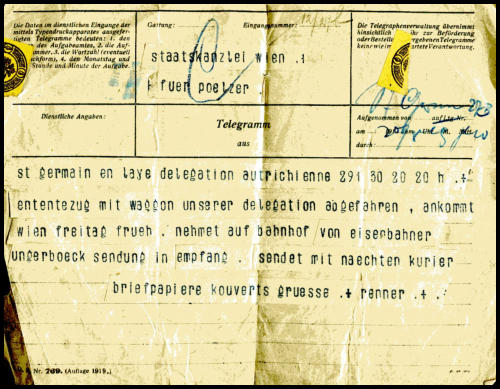 Die Daten im dienstlichen Eingange der
mittels Typendruckapparates ausgefer-
tigten Telegramme bedeuten: 1. den
des Aufgabeamtes, 2. die Auf-
mmer, 3. die Wortzahl (eventuell
chform), 4. den Monatstag und
Stunde und Minute der Aufgabe.
Gattung:
Eingangsnummer:
Die Telegraphenverwaltung übernimmt
hinsichtlich
hr zur Beförderung
oder Bestelle
ergebenen Telegramme
keine wie im
artete Verantwortung.
staatskanzlei wien .+
+ fuer poelzer .
Dienstliche Angaben:
Telegramm
aus
Aufgenommen von
auf Ltg. Nr.
am
um
M.
durch:
st germain en laye delegation autrichienne 291 30 20 20 h .+
ententezug mit waggon unserer delegation abgefahren , ankommt
wien freitag frueh . nehmet auf bahnhof von eisenbahner
ungerboeck sendung in empfang . sendet mit naechten kurier
briefpapiere kouverts gruesse .+ renner .+ .
Nr. 769. (Auflage 1919.)